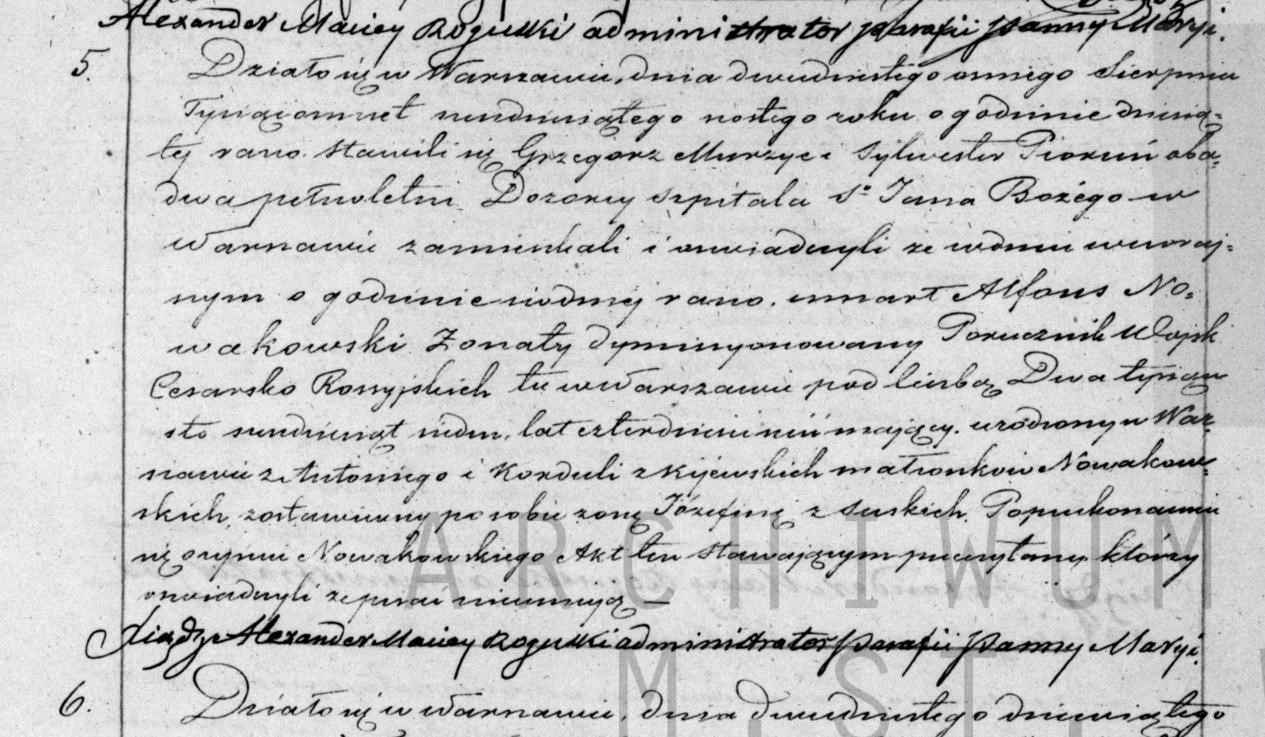 Alexander Maciey Rogulski administrator Parafii Panny Maryi.
5. Działo się w Warszawie, dnia dwudziestego ósmego Sierpnia
Tysiącośmset siedmdziesiątego szóstego roku o godzinie dziesią=
tej rano. Stawili się Grzegorz Murzyc i Sylwester Piorun oba=
dwa pełnoletni Dozorcy szpitala S° Jana Bożego w
Warszawie zamieszkali i oswiadczyli ze w dniu wczoraj=
szym o godzinie siódmej rano. umarł Alfons No=
wakowski Zonaty dymisyonowany Porucznik Wojsk
Cesarsko Rossyjskich tu w Warszawie pod liczbą Dwa tysiące
sto siedmdziesiąt siedm, lat czterdzieści mający. urodzony w War=
szawie z Antoniego i Korduli z Kijewskich małżonków Nowakow=
skich, zostawiwszy po sobie żonę Józefinę z Suskich. Po przekonaniu
się o zejściu Nowakowskiego Akt ten stawającym przeczytany, którzy
oswiadczyli ze pisać nieumieją —
Xiądz Alexander Maciey Rogulski administrator Parafii Panny Maryi.
6. Działo się w Warszawie, dnia dwudziestego dziewiątego
ARCHIWUM
M. ST. W